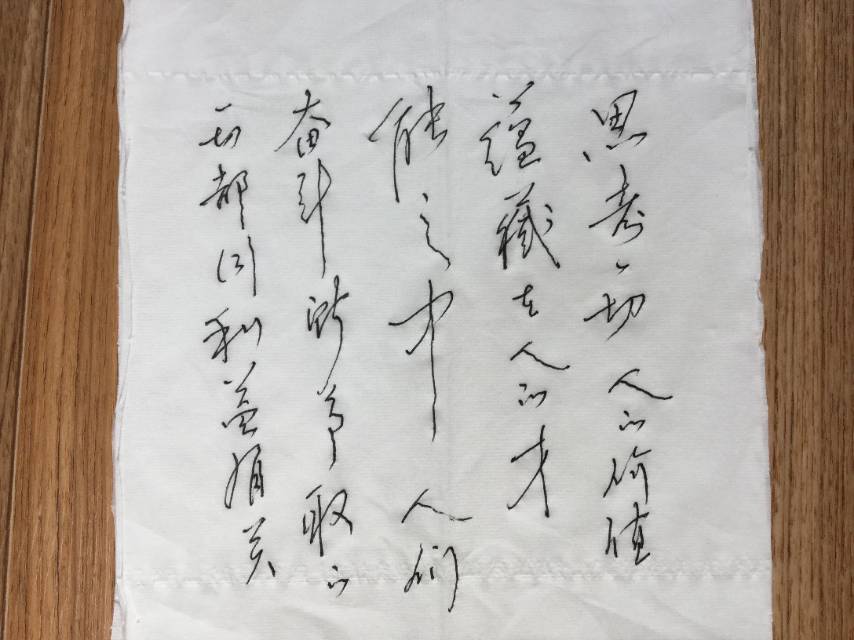 思考一切 人的价值
蕴藏在人的才
能之中 人们
奋斗所争取的
一切都同利益相关